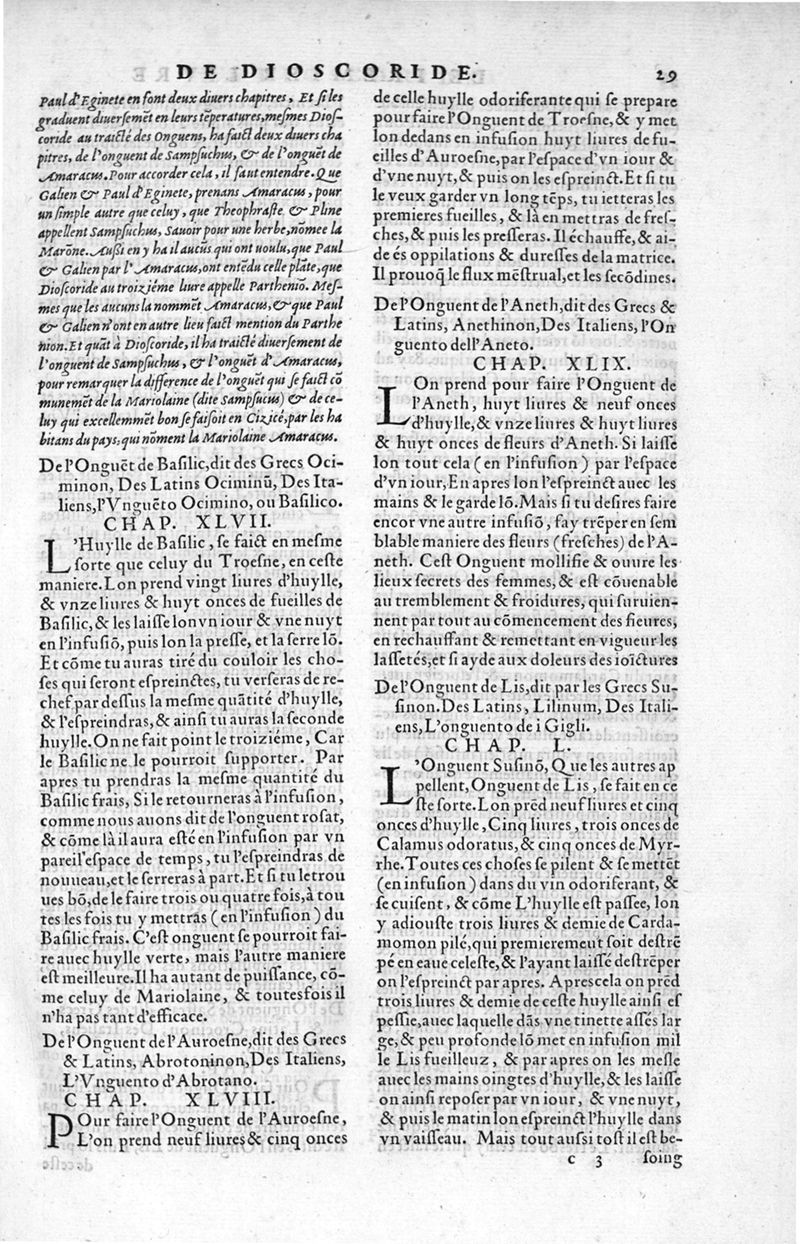 DE DIOSCORIDE.
29
Paul d'Eginete en font deux diuers chapitres, Et ſi les
graduent diuerſemẽt en leurs tẽperatures, meſmes Dioſ-
coride au traicté des Onguens, ha faict deux diuers cha
pitres, de l'onguent de Sampſuchus, & de l'onguẽt de
Amaracus. Pour accorder cela, il faut entendre. Que
Galien & Paul d'Eginete, prenans Amaracus, pour
un ſimple autre que celuy, que Theophraſte & Pline
appellent Sampſuchus, Sauoir pour une herbe, nõmee la
Marõne. Außi en y ha il aucũs qui ont uoulu, que Paul
& Galien par l' Amaracus, ont entẽdu celle plãte, que
Dioſcoride au troiziéme liure appelle Parthenio. Meſ-
mes que les aucuns la nommẽt Amaracus, & que Paul
& Galien n'ont en autre lieu faict mention du Parthe
nion. Et quãt à Dioſcoride, il ha traictlé diuerſement de
l'onguent de Sampſuchus, & l'onguẽt d'Amaracus,
pour remarquer la difference de l'onguẽt qui ſe faict cõ
munemẽt de la Mariolaine (dite Sampſucus) & de ce-
luy qui excellemmẽt bon ſe faiſoit en Cizicé, par les ha
bitans du pays, qui nõment la Mariolaine Amaracus.
De l'Onguẽt de Baſilic, dit des Grecs Oci-
minon, Des Latins Ociminũ, Des Ita-
liens, l'Vnguẽto Ocimino, ou Baſilico.
CHAP. XLVII.
L'Huylle de Baſilic, ſe faict en meſme
ſorte que celuy du Troeſne, en ceſte
maniere. Lon prend vingt liures d'huylle,
& vnze liures & huyt onces de fueilles de
Baſilic, & les laiſſe lon vn iour & vne nuyt
en l'infuſiõ, puis lon la preſſe, et la ſerre lõ.
Et cõme tu auras tiré du couloir les cho-
ſes qui ſeront eſpreinctes, tu verſeras de re-
chef par deſſus la meſme quãtité d'huylle,
& l'eſpreindras, & ainſi tu auras la ſeconde
huylle. On ne fait point le troiziéme, Car
le Baſilic ne le pourroit ſupporter. Par
apres tu prendras la meſme quantité du
Baſilic frais, Si le retourneras à l'infuſion,
comme nous auons dit de l'onguent roſat,
& cõme là il aura eſté en l'infuſion par vn
pareil eſpace de temps, tu l'eſpreindras de
nouueau, et le ſerreras à part. Et ſi tu le trou
ues bõ, de le faire trois ou quatre fois, à tou
tes les fois tu y mettras (en l'infuſion) du
Baſilic frais. C'eſt onguent ſe pourroit fai-
re auec huylle verte, mais l'autre maniere
eſt meilleure. Il ha autant de puiſſance, cõ-
me celuy de Mariolaine, & toutesfois il
n'ha pas tant d'efficace.
De l'Onguent de l'Auroeſne, dit des Grecs
& Latins, Abrotoninon, Des Italiens,
L'Vnguento d'Abrotano.
CHAP. XLVIII.
POur faire l'Onguent de l'Auroeſne,
L'on prend neuf liures & cinq onces
de celle huylle odoriferante qui ſe prepare
pour faire l'Onguent de Troeſne, & y met
lon dedans en infuſion huyt liures de fu-
eilles d'Auroeſne, par l'eſpace d'vn iour &
d'vne nuyt, & puis on les eſpreinct. Et ſi tu
le veux garder vn long tẽps, tu ietteras les
premieres fueilles, & là en mettras de freſ-
ches, & puis les preſſeras. Il échauffe, & ai-
de és oppilations & dureſſes de la matrice.
Il prouoq̃ le flux mẽſtrual, et les ſecõdines.
De l'Onguent de l'Aneth, dit des Grecs &
Latins, Anethinon, Des Italiens, l'On
guento dell'Aneto.
CHAP. XLIX.
LOn prend pour faire l'Onguent de
l'Aneth, huyt liures & neuf onces
d'huylle, & vnze liures & huyt liures
& huyt onces de fleurs d'Aneth. Si laiſſe
lon tout cela (en l'infuſion) par l'eſpace
d'vn iour, En apres lon l'eſpreinct auec les
mains & le garde lõ. Mais ſi tu deſires faire
encor vne autre infuſiõ, fay trẽper en ſem
blable maniere des fleurs (freſches) de l'A-
neth. Ceſt Onguent mollifie & ouure les
lieux ſecrets des femmes, & eſt cõuenable
au tremblement & froidures, qui ſuruien-
nent par tout au cõmencement des fieures,
en rechauffant & remettant en vigueur les
laſſetés, et ſi ayde aux doleurs des ioĩctures
De l'Onguent de Lis, dit par les Grecs Su-
ſinon. Des Latins, Lilinum, Des Itali-
ens, L'onguento de i Gigli.
CHAP. L.
L'Onguent Suſinõ, Que les autres ap
pellent, Onguent de Lis, ſe fait en ce
ſte ſorte. Lon prẽd neuf liures et cinq
onces d'huylle, Cinq liures, trois onces de
Calamus odoratus, & cinq onces de Myr-
rhe. Toutes ces choſes ſe pilent & ſe mettẽt
(en infuſion) dans du vin odoriferant, &
ſe cuiſent, & cõme L'huylle eſt paſſee, lon
y adiouſte trois liures & demie de Carda-
momon pilé, qui premierement ſoit deſtrẽ
pé en eaue celeſte, & l'ayant laiſſé deſtrẽper
on l'eſpreinct par apres. Apres cela on prẽd
trois liures & demie de ceſte huylle ainſi eſ
peſſie, auec laquelle dãs vne tinette aſſés lar
ge, & peu profonde lõ met en infuſion mil
le Lis fueilleuz, & par apres on les meſle
auec les mains oingtes d'huylle, & les laiſſe
on ainſi repoſer par vn iour, & vne nuyt,
& puis le matin lon eſpreinct l'huylle dans
vn vaiſſeau. Mais tout auſſi toſt il eſt be-
c 3 ſoing